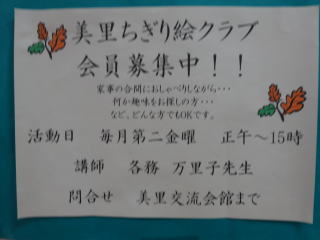 美里ちぎり絵クラブ
会員募集中！！
家事の合間におしゃべりしながら・・・
何か趣味をお探しの方・・・
など、どんな方でもOKです。
活動日　毎月第二金曜　正午～15時
講師　各務　万里子先生
問合せ　美里交流会館まで